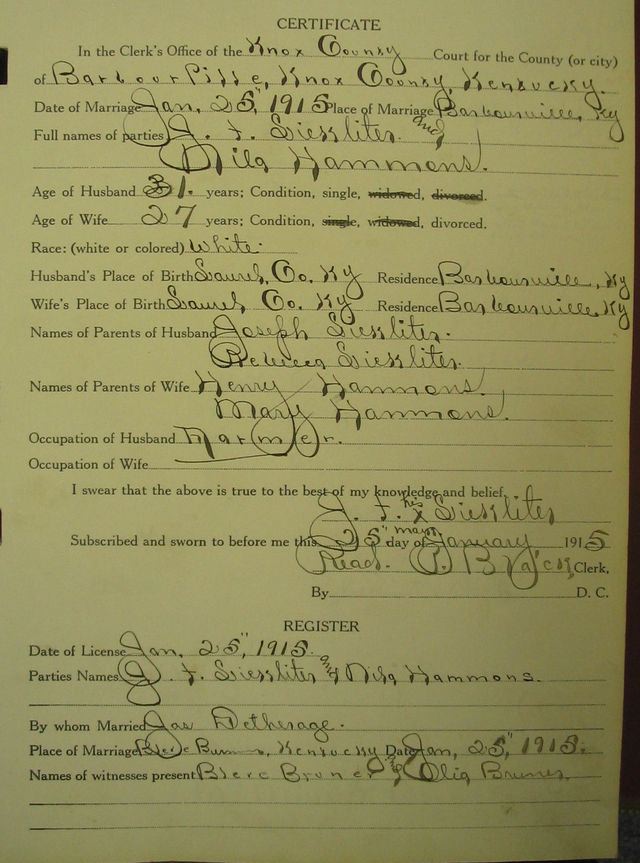 CERTIFICATE
In the Clerk's Office of the Knox County Court for the County (or city)
of Barbourville, Knox County, Kentucky.
Date of Marriage Jan. 25", 1915 Place of Marriage Barbourville, Ky
Full names of parties J. F. and
Hammons.
Age of Husband 31. years; Condition, single, widowed, divorced.
Age of Wife 27 years; Condition, single, widowed, divorced.
Race: (white or colored) White.
Husband's Place of Birth Laurel, Co. Ky Residence Barbourville, Ky
Wife's Place of Birth Laurel Co. Ky Residence Barbourville, Ky
Names of Parents of Husband Joseph
Rebecca
Names of Parents of Wife Henry Hammons,
Mary Hammons.
Occupation of Husband Farmer.
Occupation of Wife
I swear that the above is true to the best of my knowledge and belief.
J. F. his x mark
Subscribed and sworn to before me this 25" day of January 1915
Read. P. Black, Clerk,
By D. C.
REGISTER
Date of License Jan. 25", 1915.
Parties Names J. F. and Hammons.
By whom Married Jas Detherage.
Place of Marriage Kentucky Date Jan, 25," 1915.
Names of witnesses present Bruner &